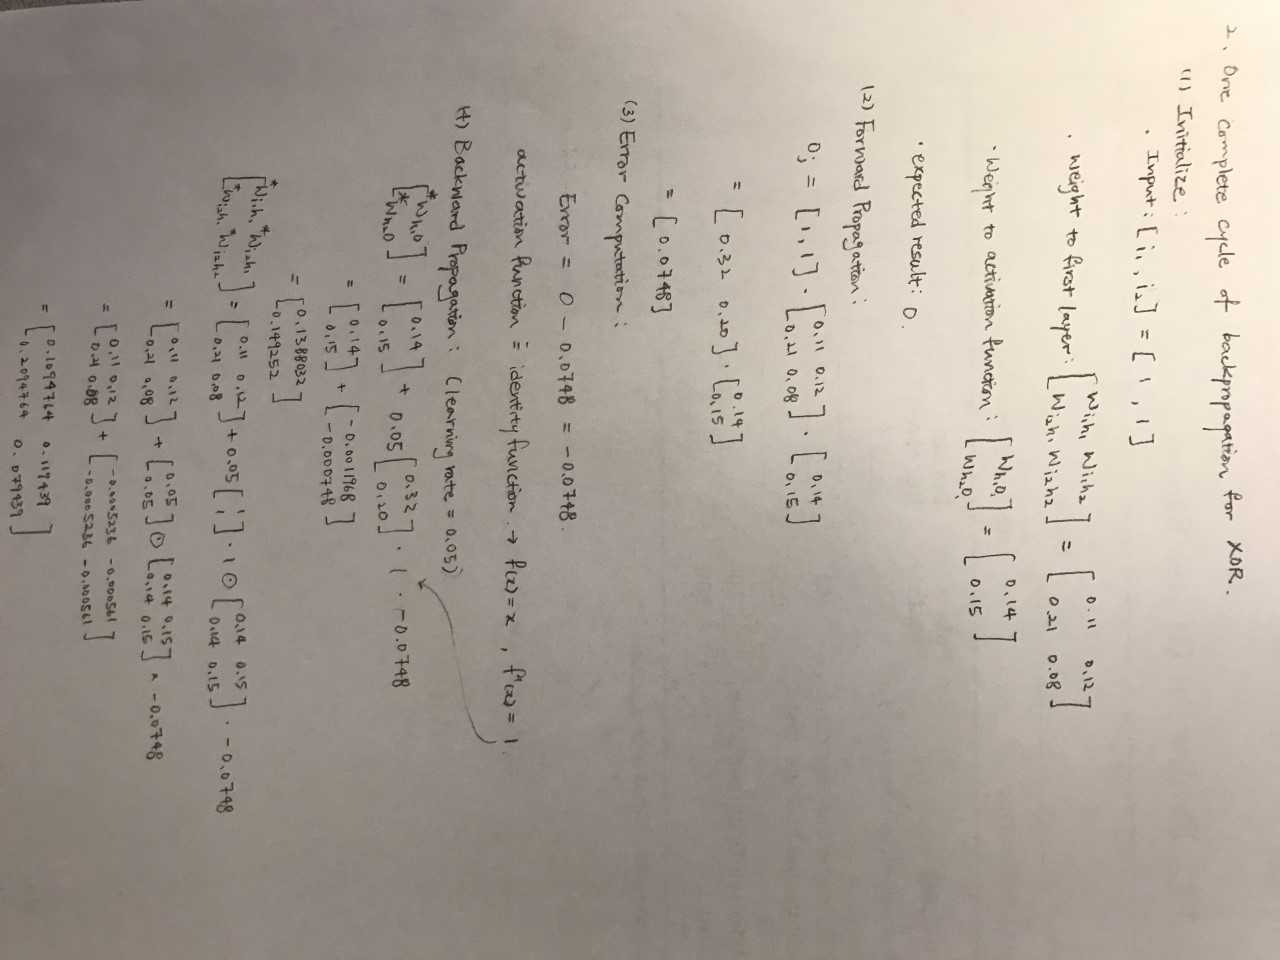 2. One complete cycle of backpropagation for XOR.
(1) Initialize:
· Input: [i₁, i₂] = [1, 1]
· weight to first layer: [Wi₁h₁ Wi₁h₂
Wi₂h₁ Wi₂h₂] = [0.11 0.12
0.21 0.08]
· Weight to activation function: [Wh₁O₁
Wh₂O₁] = [0.14
0.15]
· expected result: 0.
(2) Forward Propagation:
Oj = [1,1] · [0.11 0.12
0.21 0.08] · [0.14
0.15]
= [0.32 0.20] · [0.14
0.15]
= [0.0748]
(3) Error Computation:
Error = 0 - 0.0748 = -0.0748.
activation function = identity function. → f(x) = x, f'(x) = 1.
(4) Backward Propagation: (learning rate = 0.05)
[*Wh₁O
*Wh₂O] = [0.14
0.15] + 0.05 [0.32
0.20] · 1 · -0.0748
= [0.14
0.15] + [-0.0011968
-0.000748]
= [0.1388032
0.149252]
[*Wi₁h₁ *Wi₂h₁
*Wi₂h₁ *Wi₂h₂] = [0.11 0.12
0.21 0.08] + 0.05 [1
1] · 1 ⊙ [0.14 0.15
0.14 0.15] · -0.0748
= [0.11 0.12
0.21 0.08] + [0.05
0.05] ⊙ [0.14 0.15
0.14 0.15] × -0.0748
= [0.11 0.12
0.21 0.08] + [-0.0005236 -0.000561
-0.0005236 -0.000561]
= [0.1094764 0.119439
0.2094764 0.079439]